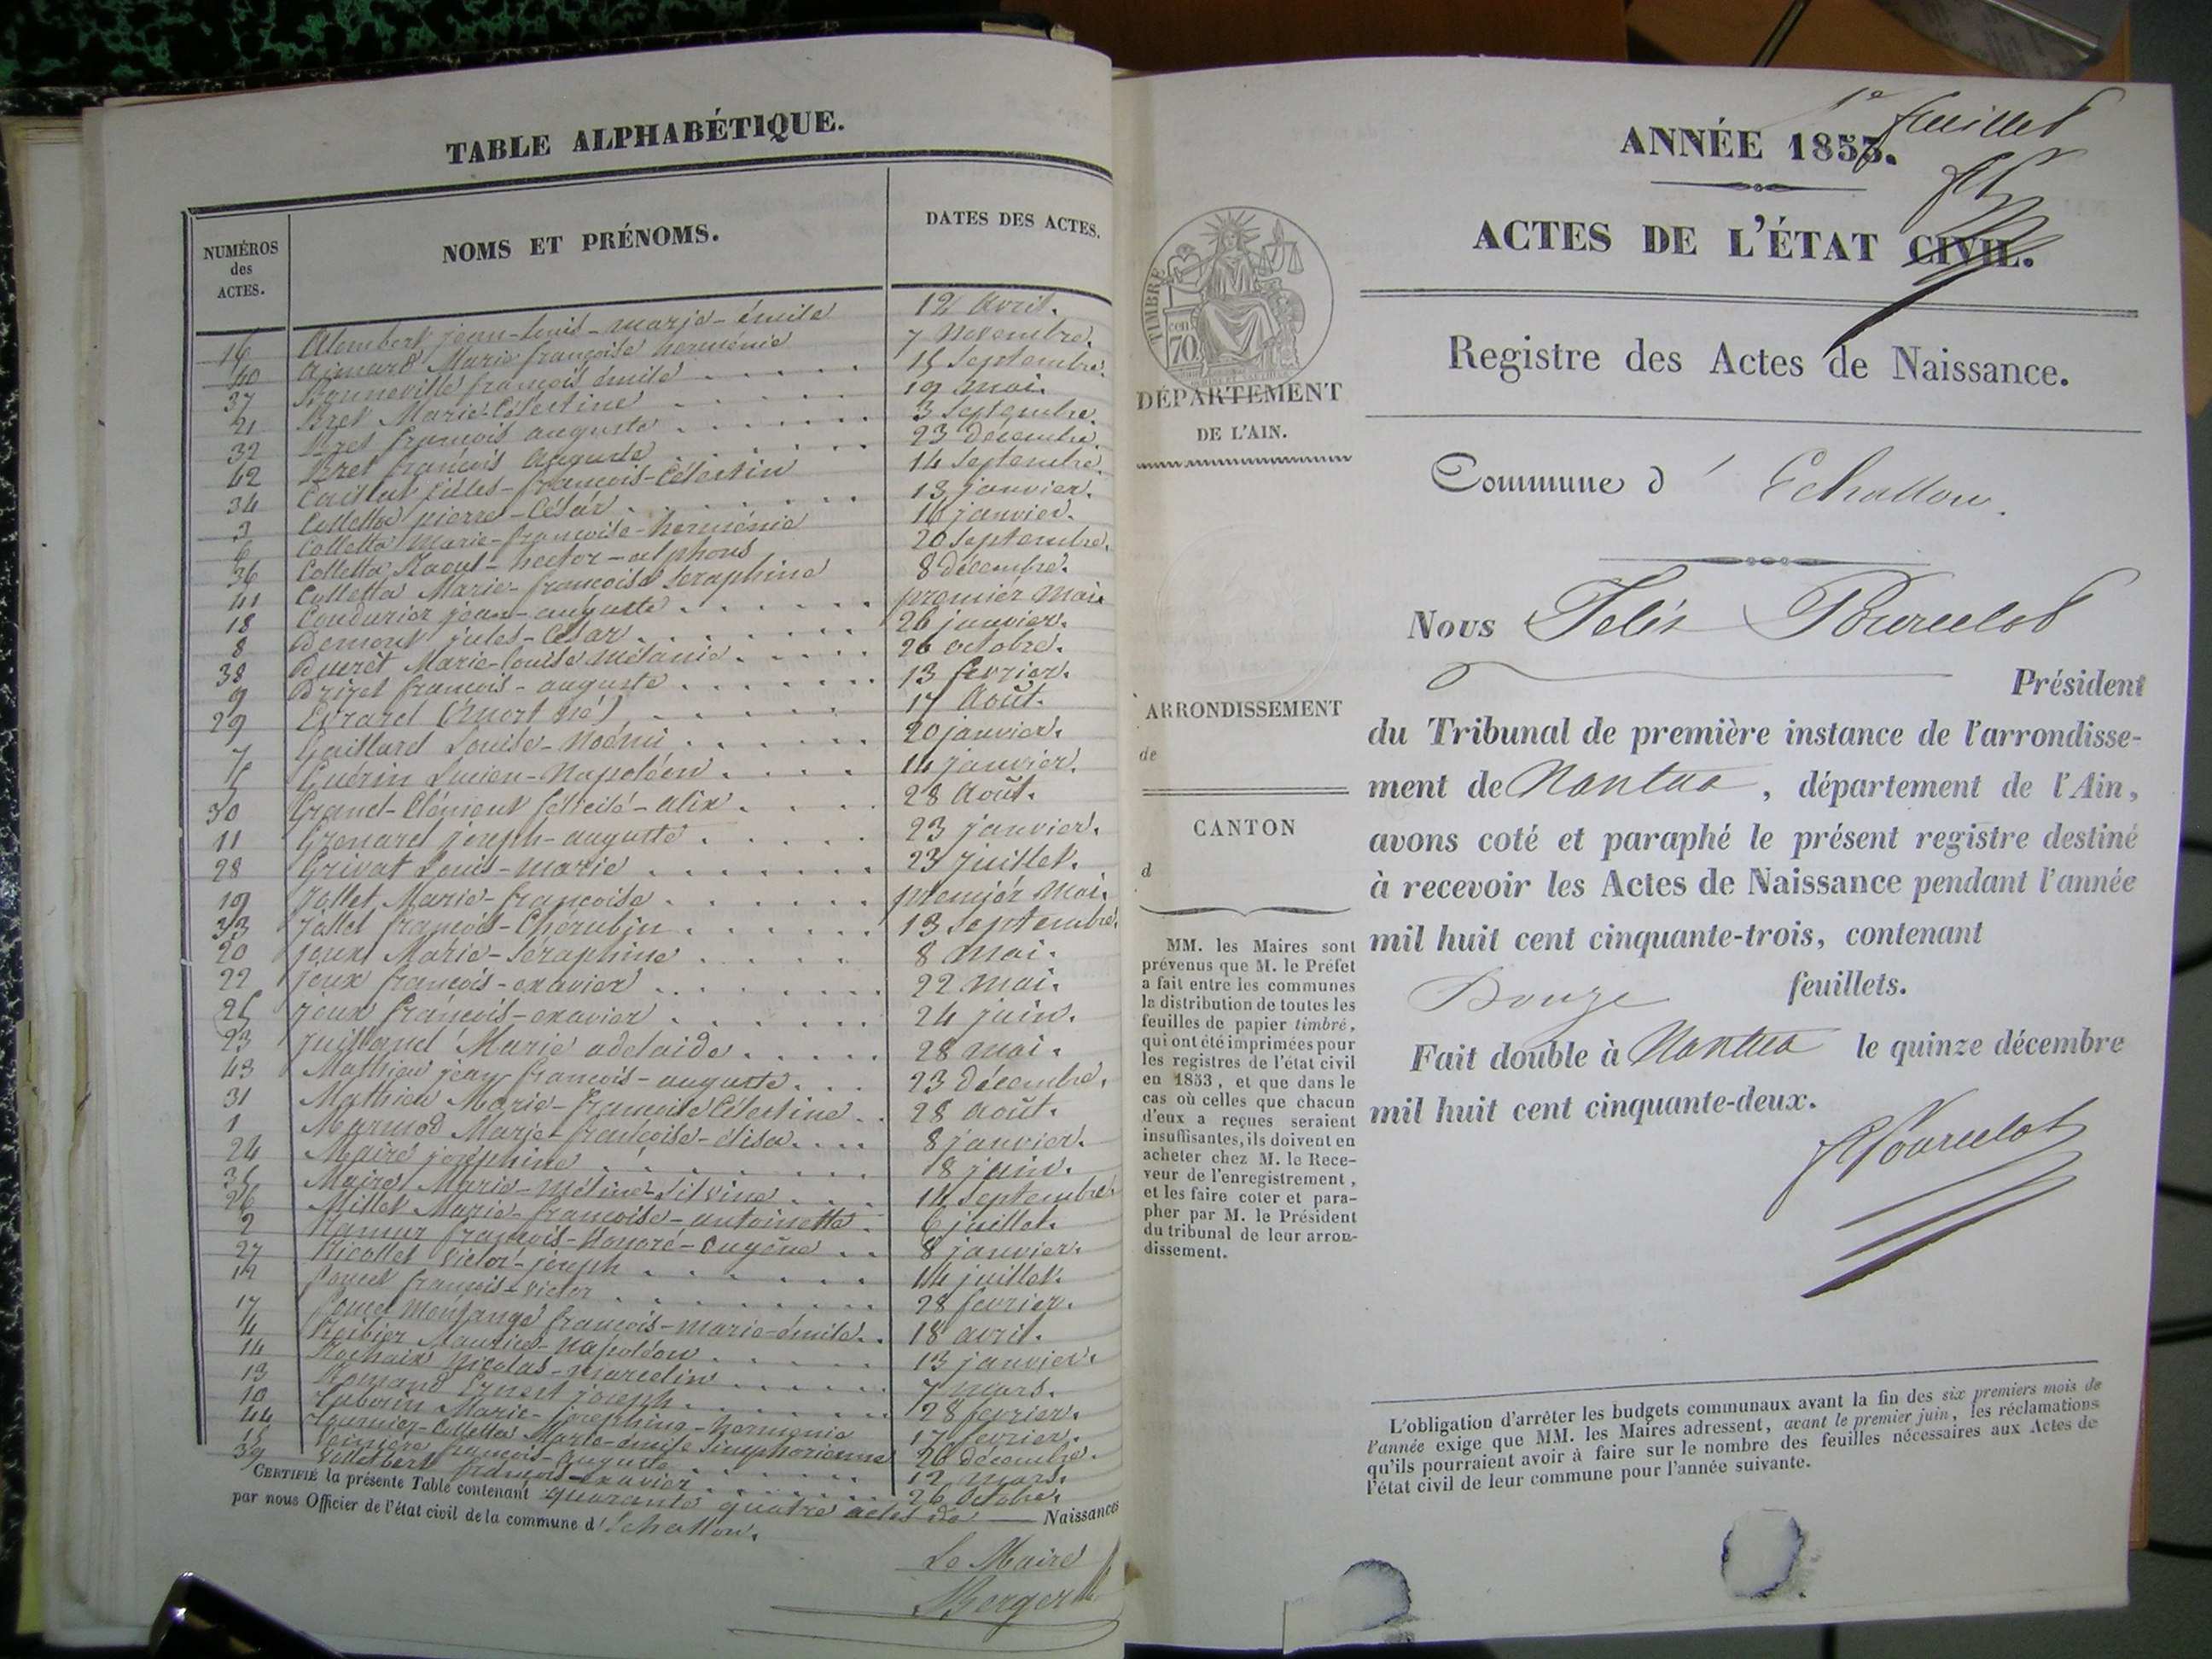 TABLE ALPHABÉTIQUE.
NUMÉROS des ACTES. NOMS ET PRÉNOMS. DATES DES ACTES.
16 jean-louis-marie-émile 12 Avril.
40 Aimard Marie françoise herménie 7 Novembre.
37 Bonneville françois émile 15 Septembre.
21 Bret Marie-Célestine 19 mai.
32 Bret françois auguste 3 Septembre.
42 Bret françois Auguste 23 décembre.
34 Caillat jules-françois-Célestin 14 Septembre.
3 Colletta pierre-César 13 janvier.
6 Colletta Marie-françoise-herménie 16 janvier.
36 Colletta Raoul-hector-alphons 20 Septembre.
41 Colletta Marie-françoise Séraphine 8 décembre.
18 Coudurier jean-auguste premier Mai.
8 Demont jules-César 26 janvier.
38 Duret Marie-louise Mélanie 26 octobre.
9 françois-auguste 13 fevrier.
29 Evrard (Mort né) 17 Août.
7 Gaillard Louise-Noémi 20 janvier.
5 Guérin Lucien-Napoléon 14 janvier.
30 Grand-Clément felicité-alix 28 Août.
11 Grenard joseph-auguste 23 janvier.
28 Grivat Louis-marie 23 juillet.
19 Jollet Marie-françoise premier Mai.
33 Jollet françois-Chérubin 13 Septembre.
20 jeux Marie-Séraphine 8 mai.
22 jeux françois-exavier 22 mai.
25 jeux françois-exavier 24 juin.
23 juilland Marie adelaide 28 mai.
43 Mathieu jean françois-auguste 23 Décembre.
31 Mathieu Marie-françoise Célestine 28 août.
1 Marmod Marie-françoise-élisa 8 janvier.
24 Maire joséphine 8 juin.
35 Maire Marie-Méline-Silvine 14 Septembre.
26 Millet Marie-françoise-antoinette 6 juillet.
2 françois-honoré-Eugène 8 janvier.
27 Nicollet victor-joseph 14 juillet.
12 Poncet françois-victor 28 fevrier.
17 Poncet Montange françois-marie-émile 18 avril.
4 Maurice-Napoléon 13 janvier.
14 Rochaix Nicolas-marcelin 7 mars.
13 Romand Ernest joseph 28 fevrier.
10 Marie-joséphine-hermenie 17 fevrier.
44 Tournier-Colletta Marie-émilie Simphorienne 26 décembre.
15 françois-Auguste 12 mars.
39 françois-exavier 26 Octobre.
CERTIFIÉ la présente Table contenant quarante quatre actes de Naissances
par nous Officier de l'état civil de la commune d'Echallon.
Le Maire
Berger
1er feuillet
ANNÉE 1853.
ACTES DE L'ÉTAT CIVIL.
Registre des Actes de Naissance.
TIMBRE
cen 70
DÉPARTEMENT
DE L'AIN.
Commune d'Echallon.
Nous Félix Pourcelot
Président
du Tribunal de première instance de l'arrondisse-
ment de Nantua, département de l'Ain,
avons coté et paraphé le présent registre destiné
à recevoir les Actes de Naissance pendant l'année
mil huit cent cinquante-trois, contenant
Douze feuillets.
Fait double à Nantua le quinze décembre
mil huit cent cinquante-deux.
FPourcelot
ARRONDISSEMENT
de
CANTON
d
MM. les Maires sont
prévenus que M. le Préfet
a fait entre les communes
la distribution de toutes les
feuilles de papier timbré,
qui ont été imprimées pour
les registres de l'état civil
en 1853, et que dans le
cas où celles que chacun
d'eux a reçues seraient
insuffisantes, ils doivent en
acheter chez M. le Rece-
veur de l'enregistrement,
et les faire coter et para-
pher par M. le Président
du tribunal de leur arron-
dissement.
L'obligation d'arrêter les budgets communaux avant la fin des six premiers mois de
l'année exige que MM. les Maires adressent, avant le premier juin, les réclamations
qu'ils pourraient avoir à faire sur le nombre des feuilles nécessaires aux Actes de
l'état civil de leur commune pour l'année suivante.